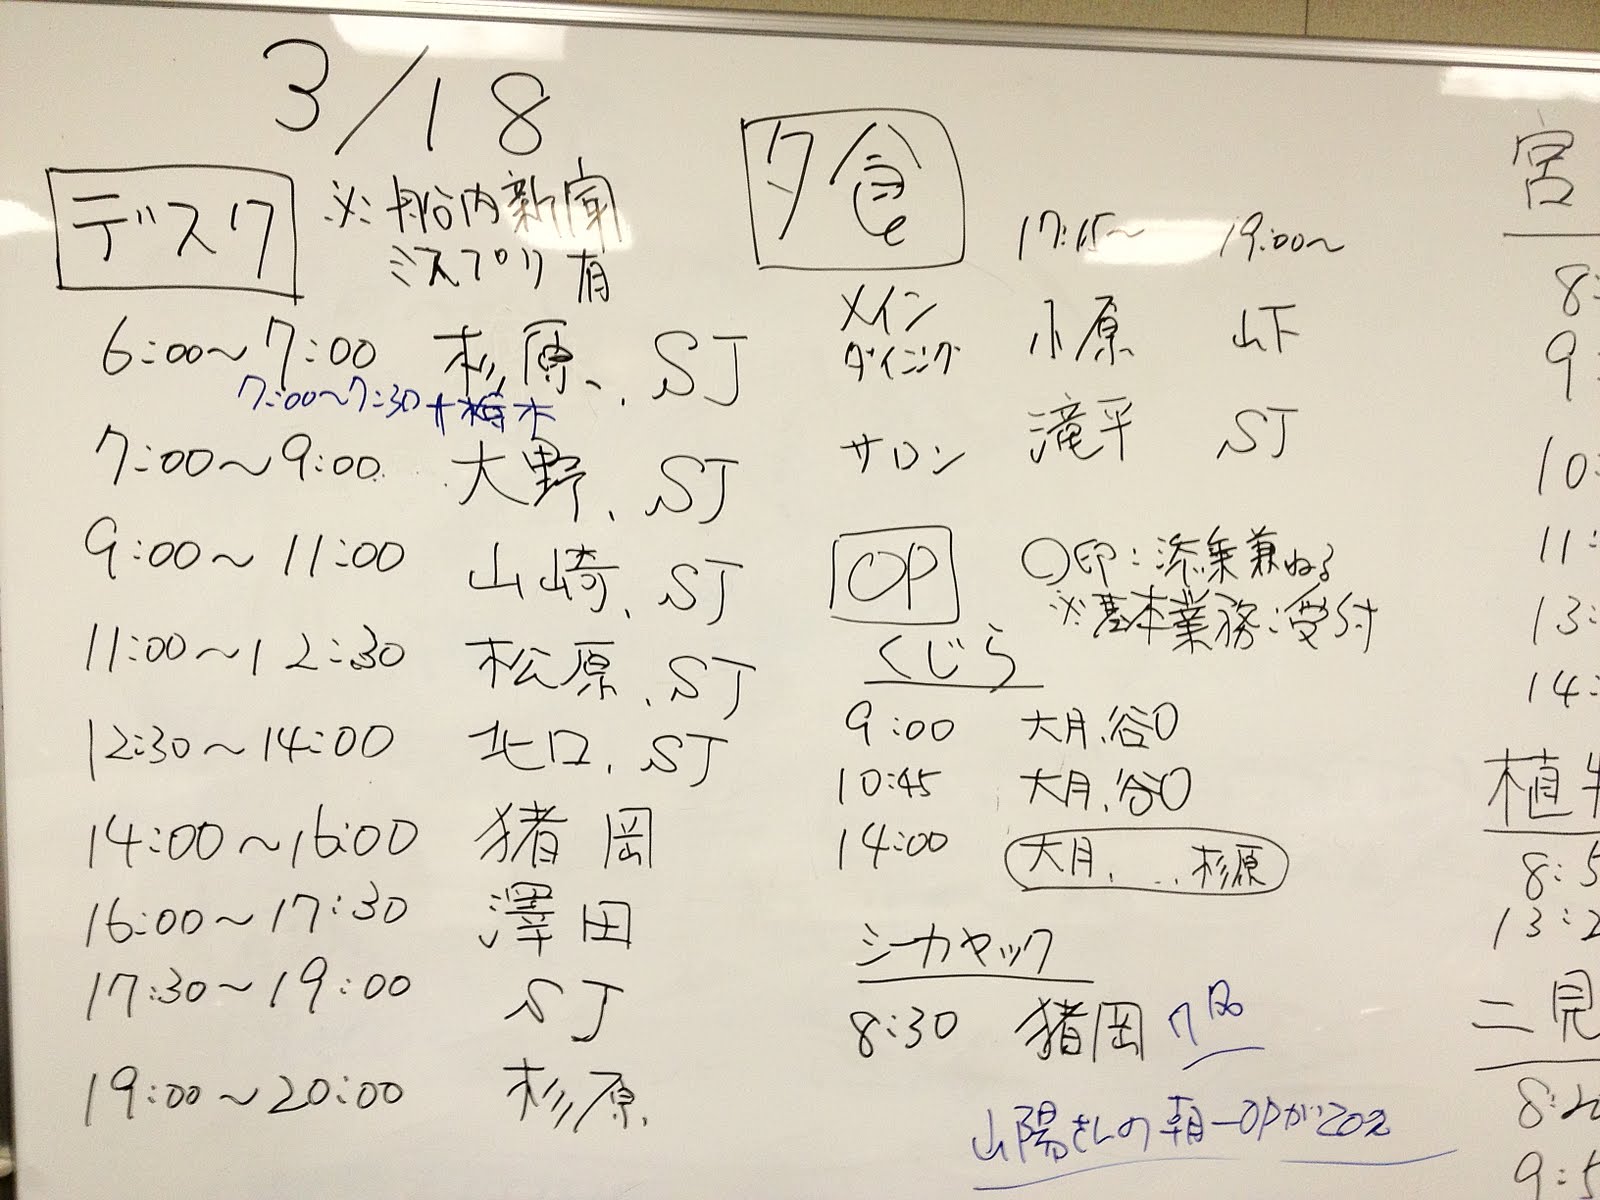 3/18
デスク
※船内新聞
ミスプリ有
6:00～7:00 杉原、SJ
7:00～7:30 +梅木
7:00～9:00 大野、SJ
9:00～11:00 山崎、SJ
11:00～12:30 松原、SJ
12:30～14:00 北口、SJ
14:00～16:00 猪岡
16:00～17:30 澤田
17:30～19:00 SJ
19:00～20:00 杉原
夕食
17:15～ 19:00～
メイン
ダイニング 小原 山下
サロン 滝平 SJ
OP
○印:添乗兼ねる
※基本業務:受付
くじら
9:00 大月、谷口
10:45 大月、谷口
14:00 大月、杉原
シーカヤック
8:30 猪岡
山陽さんの朝一OPが
宮
8:
9:
10:
11:
13:
14:
植
8:5
13:2
二見
8:20
9:5